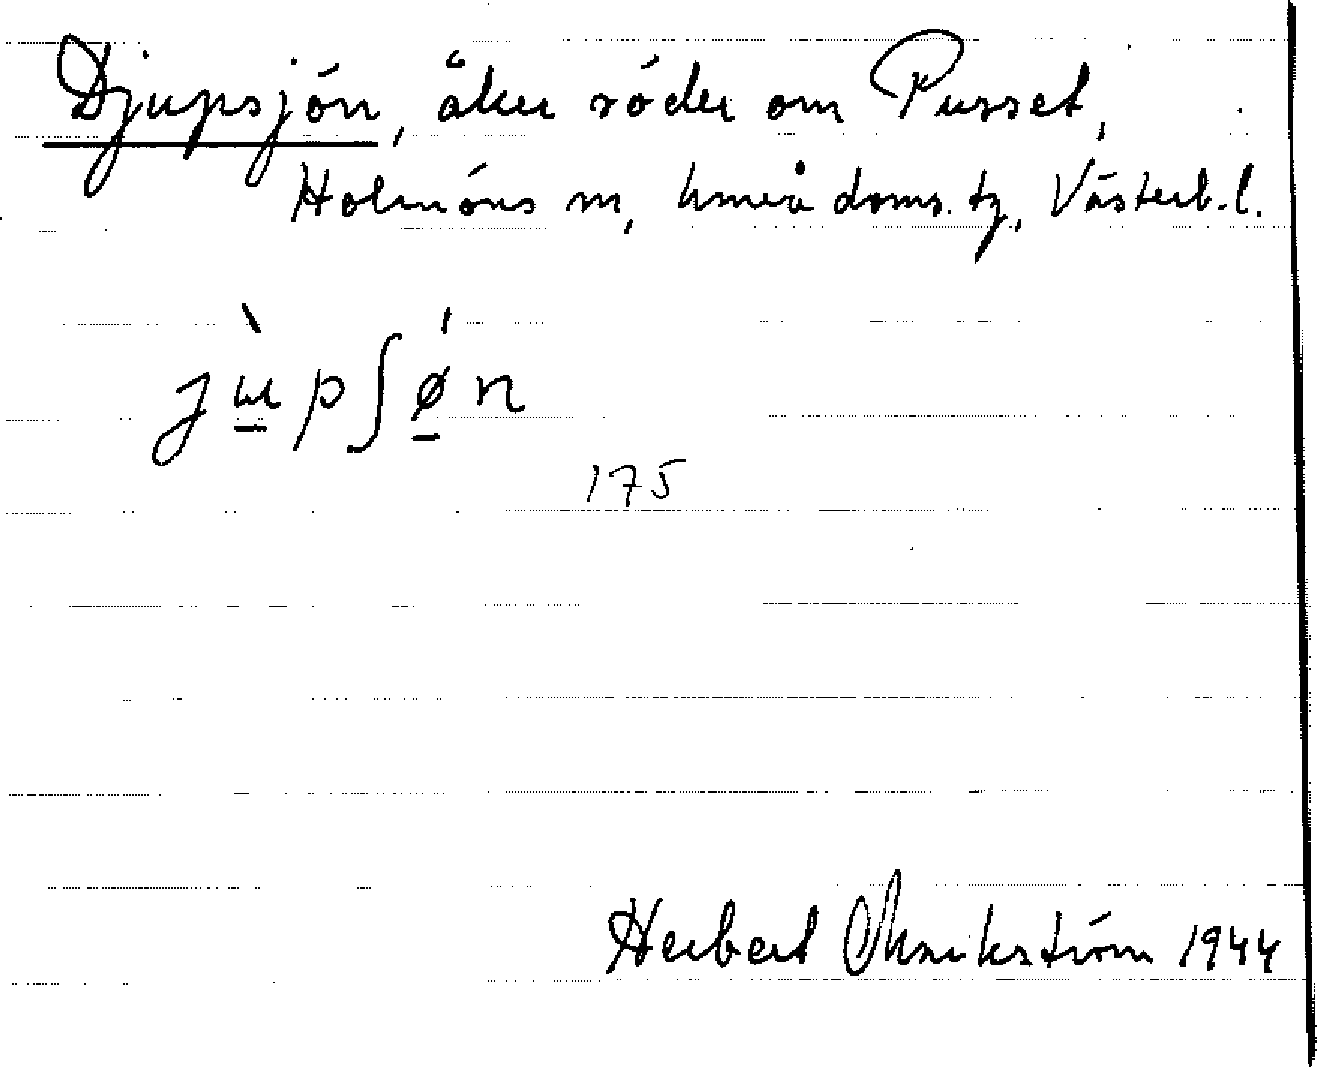 Djupsjön, åker söder om Pusset,
Holmöns sn, Umeå doms. tg, Västerb. l.
jùpʃøn
175
Herbert Markström 1944